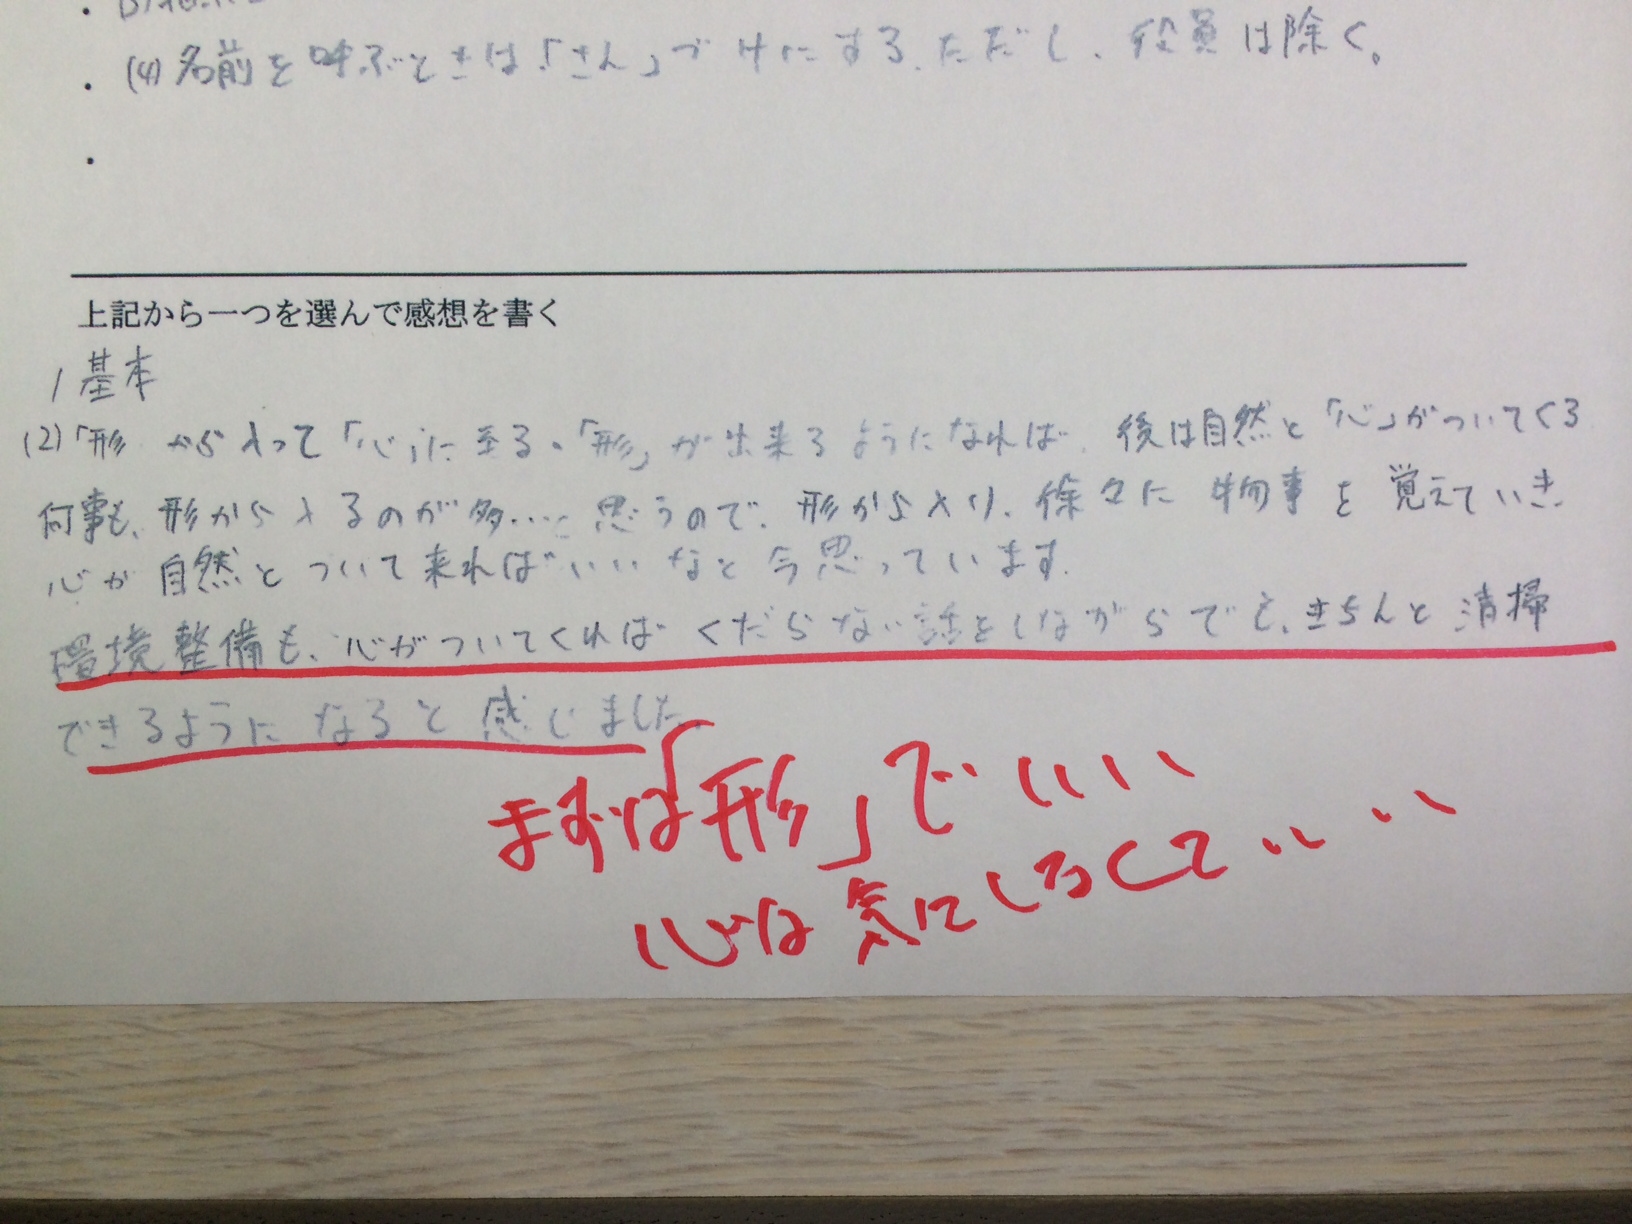 (4)名前を呼ぶときは「さん」づけにする。ただし、役員は除く。
上記から一つを選んで感想を書く
1 基本
(2)「形」から入って「心」に至る。「形」が出来るようになれば、後は自然と「心」がついてくる
何事も、形から入るのが多いと思うので、形から入り、徐々に物事を覚えていき
心が自然とついて来ればいいなと今思っています。
環境整備も、心がついてくればくだらない話をしながらでも、きちんと清掃
できるようになると感じました。
まずは「形」でいい
心は気にしなくていい